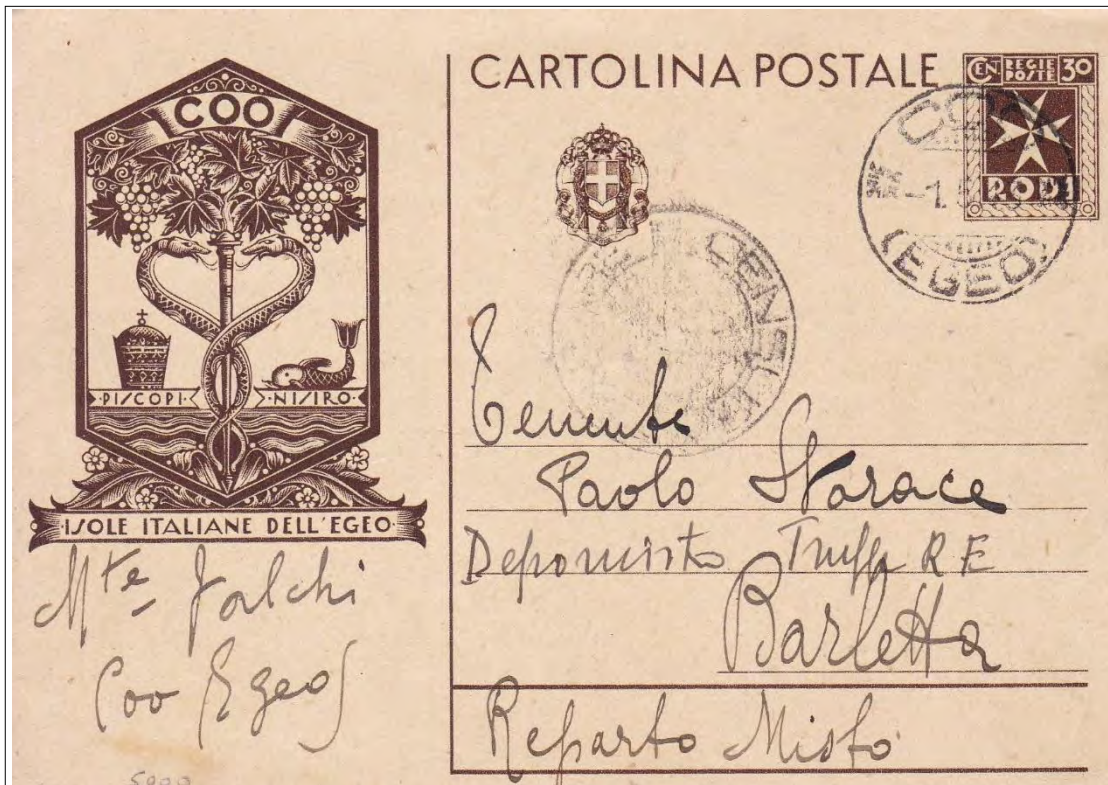 COO
PISCOPI
NISIRO
ISOLE ITALIANE DELL'EGEO
Mte Falchi
Coo Egeo
CARTOLINA POSTALE
CEN REGIE POSTE 30
RODI
COO
(EGEO)
CENSURA
Tenente
Paolo Starace
Deposito Truppa R E
Barletta
Reparto Misto